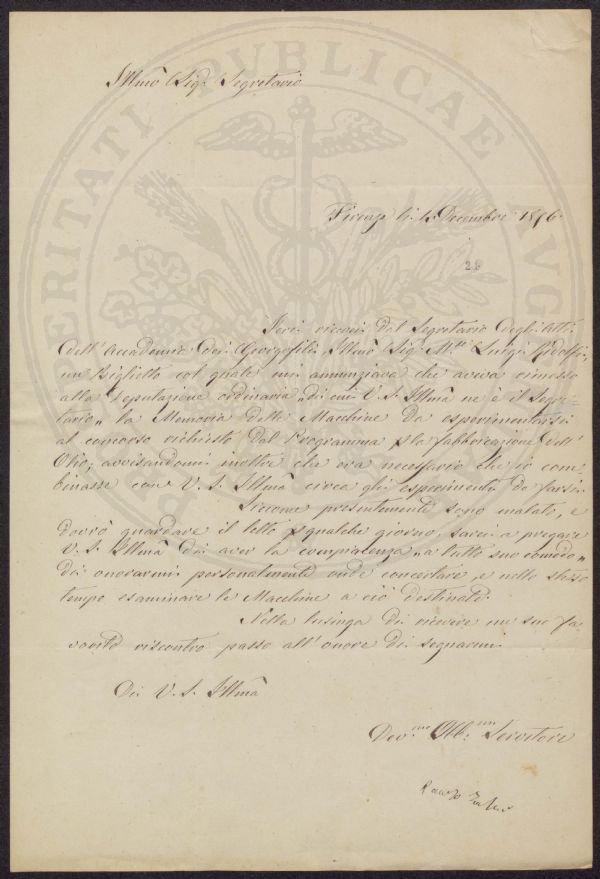 Illmo Sig. Segretario
Firenze li 12 Decembre 1856
28
Ieri ricevei dal Segretario degli Atti
dell'Accademia dei Georgofili Illmo Sig. M.se Luigi Ridolfi
un Biglietto col quale mi annunziava che aveva rimesso
alla Deputazione ordinaria "di cui V. S. Illma ne è il Segre-
tario" la Memoria delle Macchine da esperimentarsi
al concorso richiesto dal Programma p la fabbricazione dell'
Olio; avvisandomi inoltre che era necessario che io com
binasse con V. S. Illma circa gli esperimenti da farsi.
Siccome presentemente sono malato, e
dovrò guardare il letto p qualche giorno, sarei a pregare
V. S. Illma di aver la compiacenza "a tutto suo comodo"
di onorarmi personalmente onde concertare, e nello stesso
tempo esaminare le Macchine a ciò destinate.
Nella lusinga di ricevere un suo fa
vorito riscontro passo all'onore di segnarmi
Di V. S. Illma
Dev.mo Obb.mo Servitore
PROSPERITATI PUBLICAE AUGENDAE